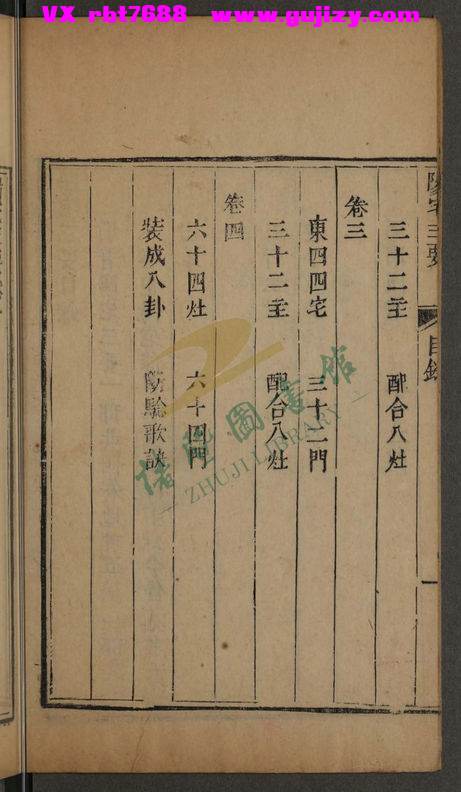 VX rbt7688 www.gujizy.com
陽宅三要
目錄
一
三十二主 配合八灶
卷三
東四四宅 三十二門
三十二主 配合八灶
卷四
六十四灶 六十四門
裝成八卦 防驗歌訣
諸暨圖書館
ZHUJI LIBRARY